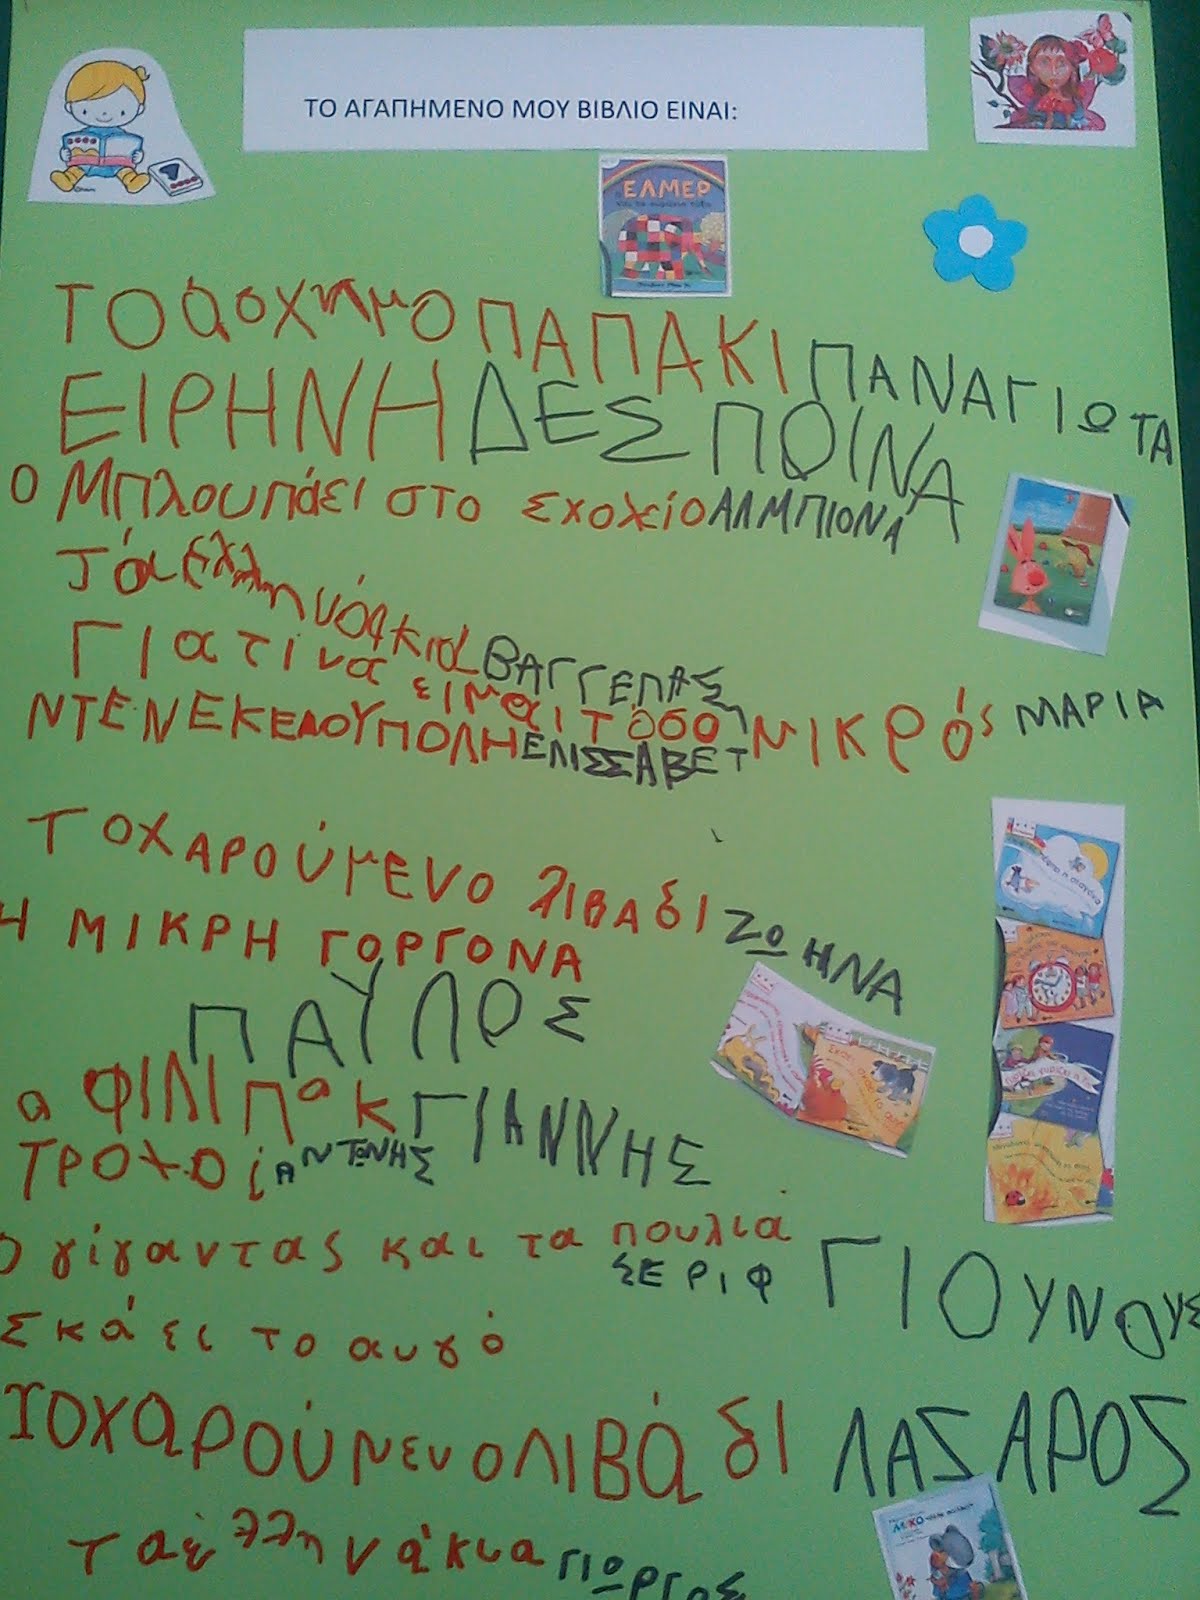 ΤΟ ΑΓΑΠΗΜΕΝΟ ΜΟΥ ΒΙΒΛΙΟ ΕΙΝΑΙ:
ΕΛΜΕΡ
ΤΟ αΣΧημΟ ΠΑΠΑΚΙ ΠΑΝΑΓΙΩΤΑ
ΕΙΡΗΝΗ ΔΕΣΠΟΙΝΑ
Ο Μπλουπάει στο σχολείο ΑΛΜΠΙΟΝΑ
Τα ελληνάκια ΒΑΓΓΕΛΑΣ
Γιατί να είμαι τόσο μικρός ΜΑΡΙΑ
ΝΤΕΝΕΚΕΔΟΥΠΟΛΗ ΕΛΙΣΣΑΒΕΤ
ΤΟ ΧΑΡΟΎΜΕΝΟ λΙΒΑδΙ ΖΩΗΝΑ
Η ΜΙΚΡΗ ΓΟΡΓΟΝΑ
ΠΑΥΛΟΣ
α ΦΙΛΙΠακ ΓΙΑΝΝΗΣ
ΤΡΟΧΟί ΑΝΤΩΝΗΣ
Ο γίγαντας και τα πουλιά
ΣΕΡΙΦ ΓΙΟΥΝΟΥΣ
Σκάει το αυγό
ΤΟ ΧαΡΟύμενο ΛΙΒάδΙ ΛΑΖΑΡΟΣ
Τα έλληνάκια ΓΙΩΡΓΟΣ